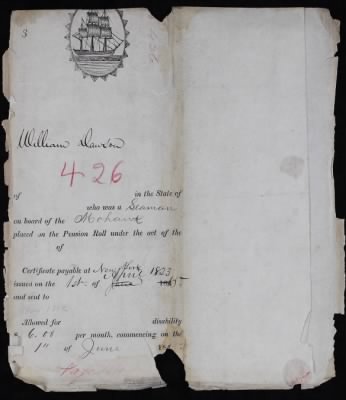 3
William Dawson
426
of in the State of
who was a Seaman
on board of the Mohawk
placed on the Pension Roll under the act of the
of
Certificate payable at New York
issued on the 1st. of June
and sent to
Allowed for disability
6.00 per month, commencing on the
1st of June